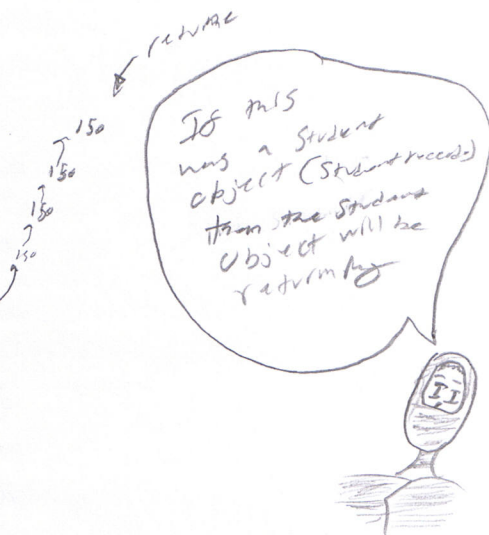 return
150
150
150
150
If this
was a Student
object (Student records)
then the Student
object will be
returning